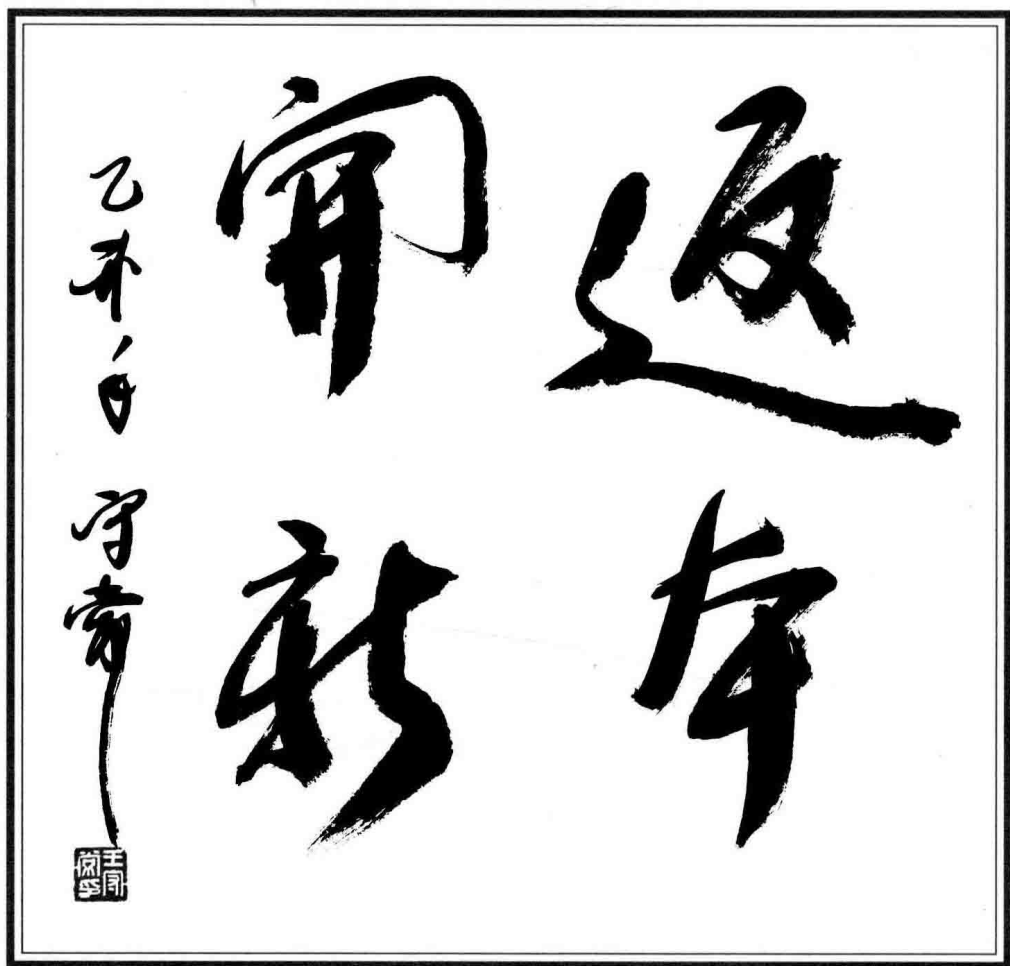 返本
開新
乙未年 守常
王守常印